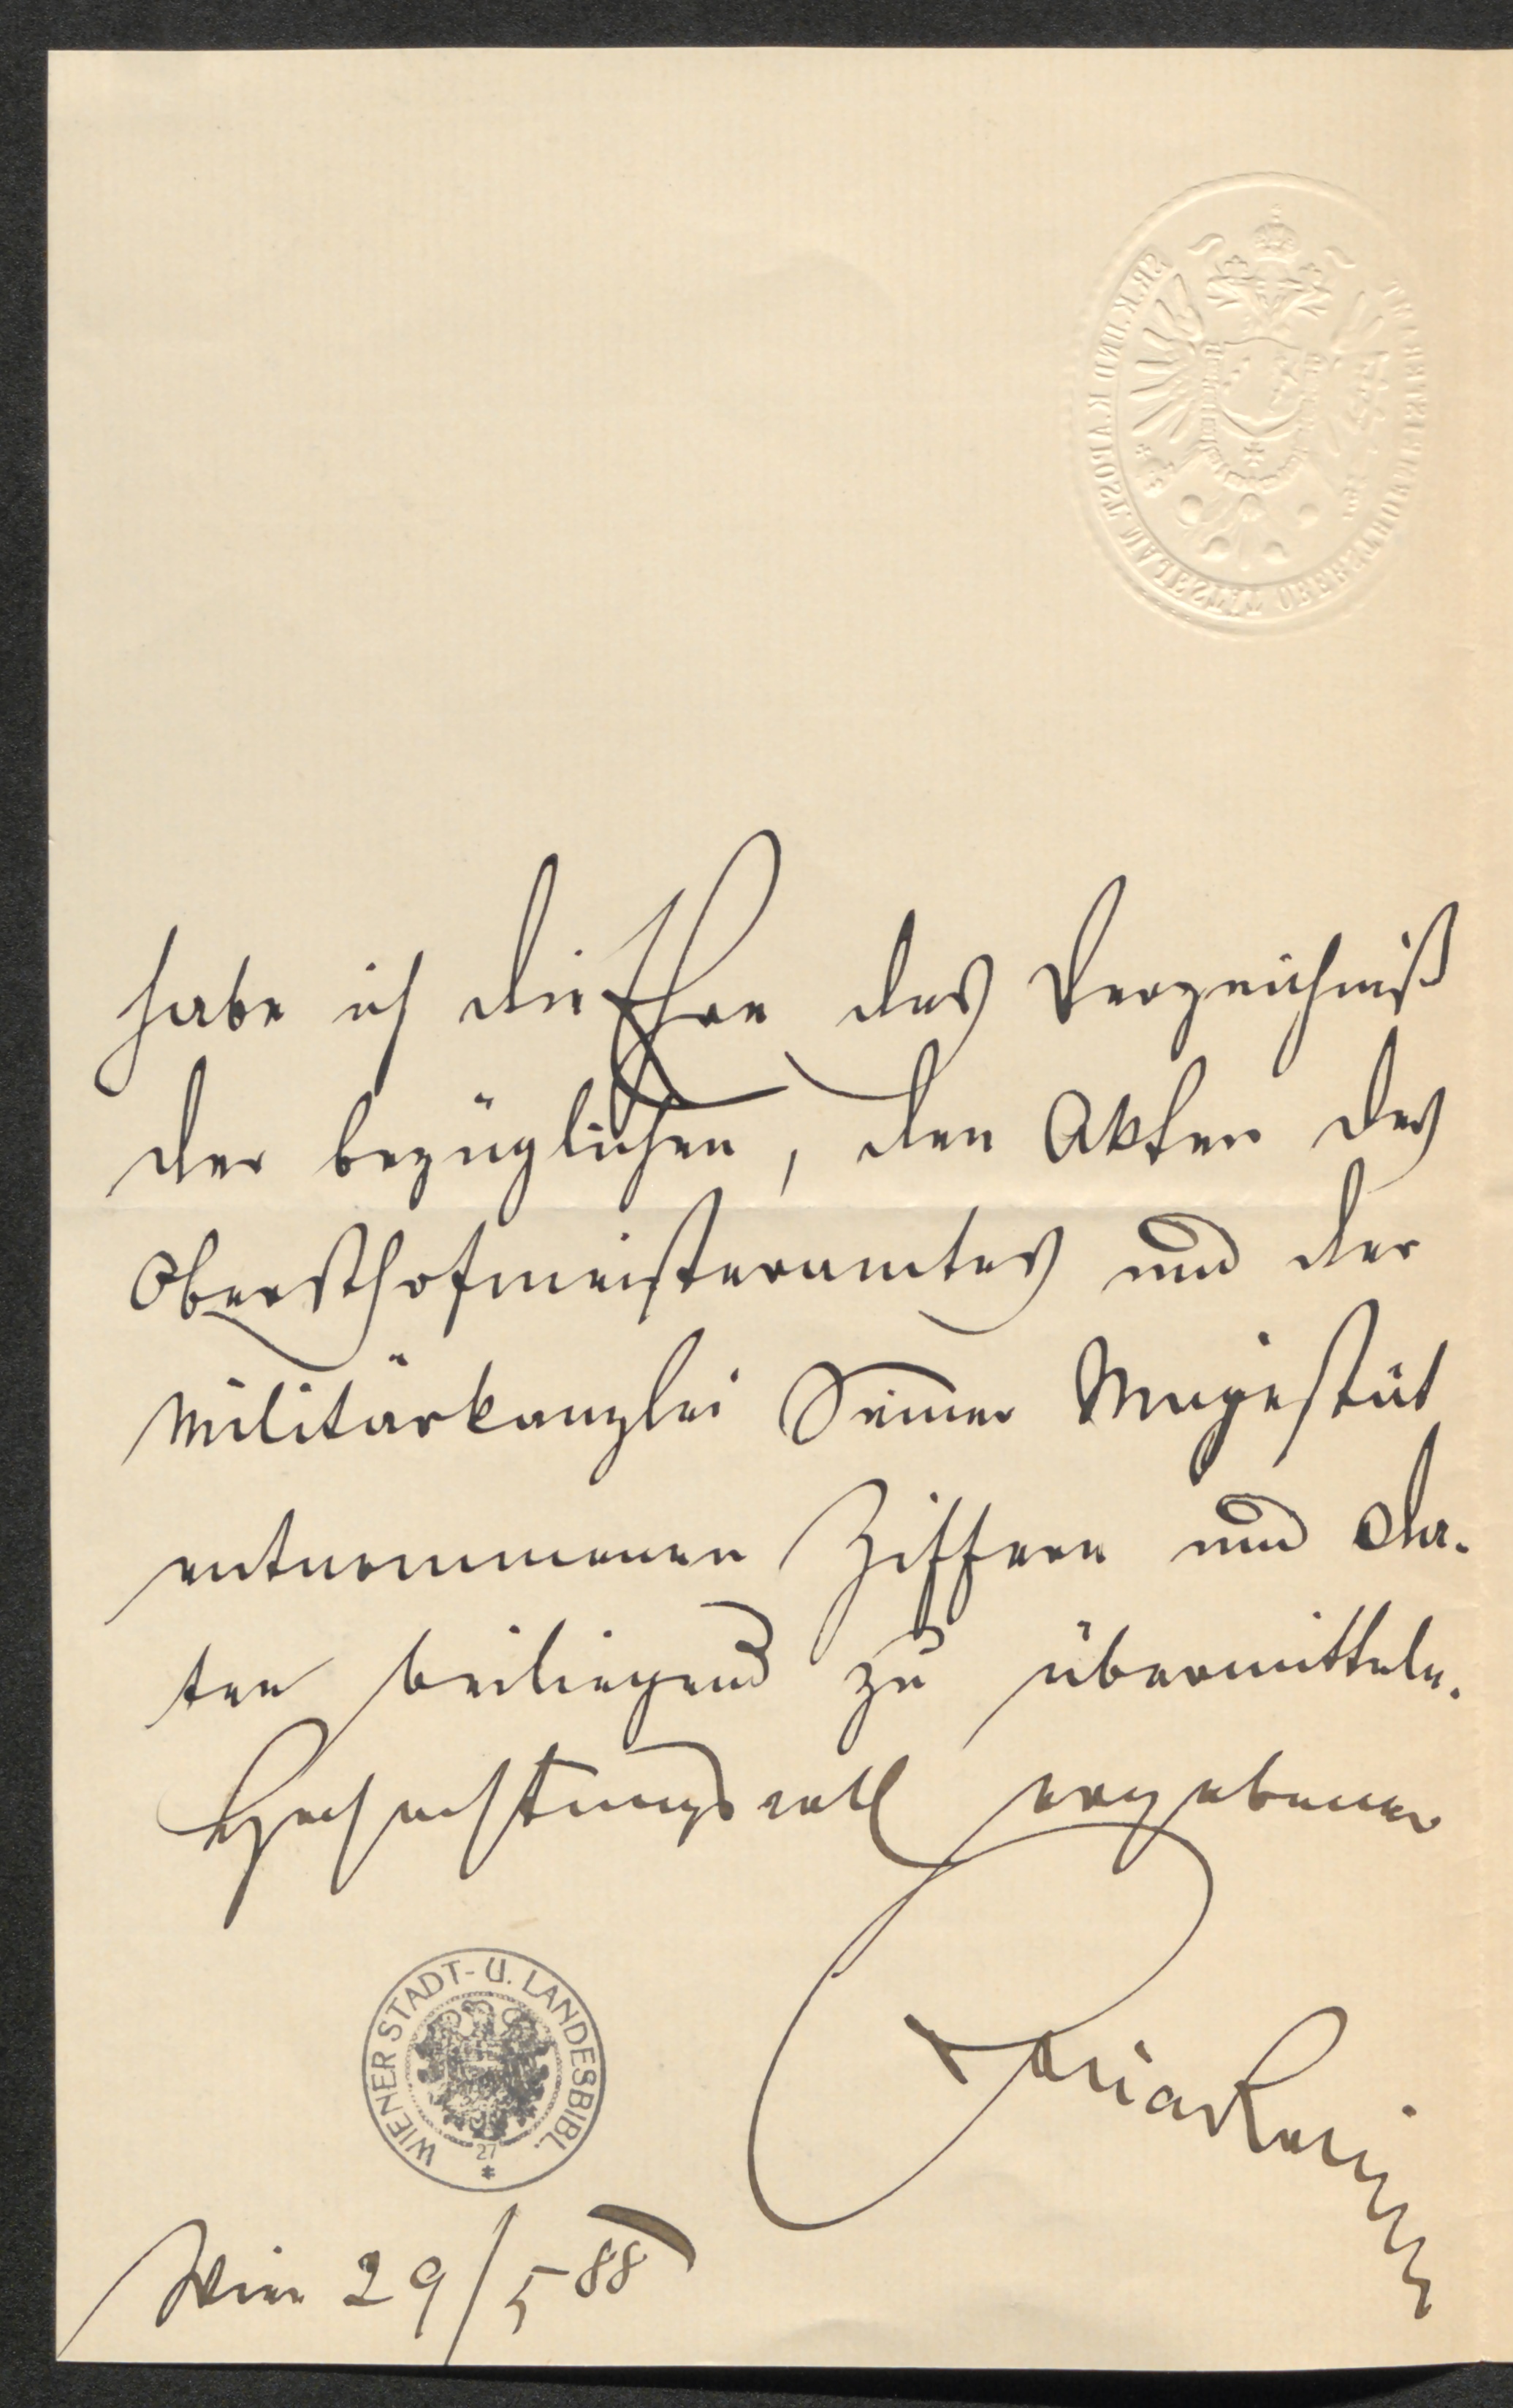 SR. K. UND K. APOST. MAJESTÄT OBERSTHOFMEISTERAMT
habe ich die Ehre das Verzeichniß
der bezüglichen, den Akten des
Obersthofmeisteramtes und der
Militärkanzlei Seiner Majestät
entnommenen Ziffern und Da-
ten beiliegend zu übermitteln.
Hochachtungsvoll ergebener
WIENER STADT- U. LANDESBIBL.
27
Wien 29/5 88